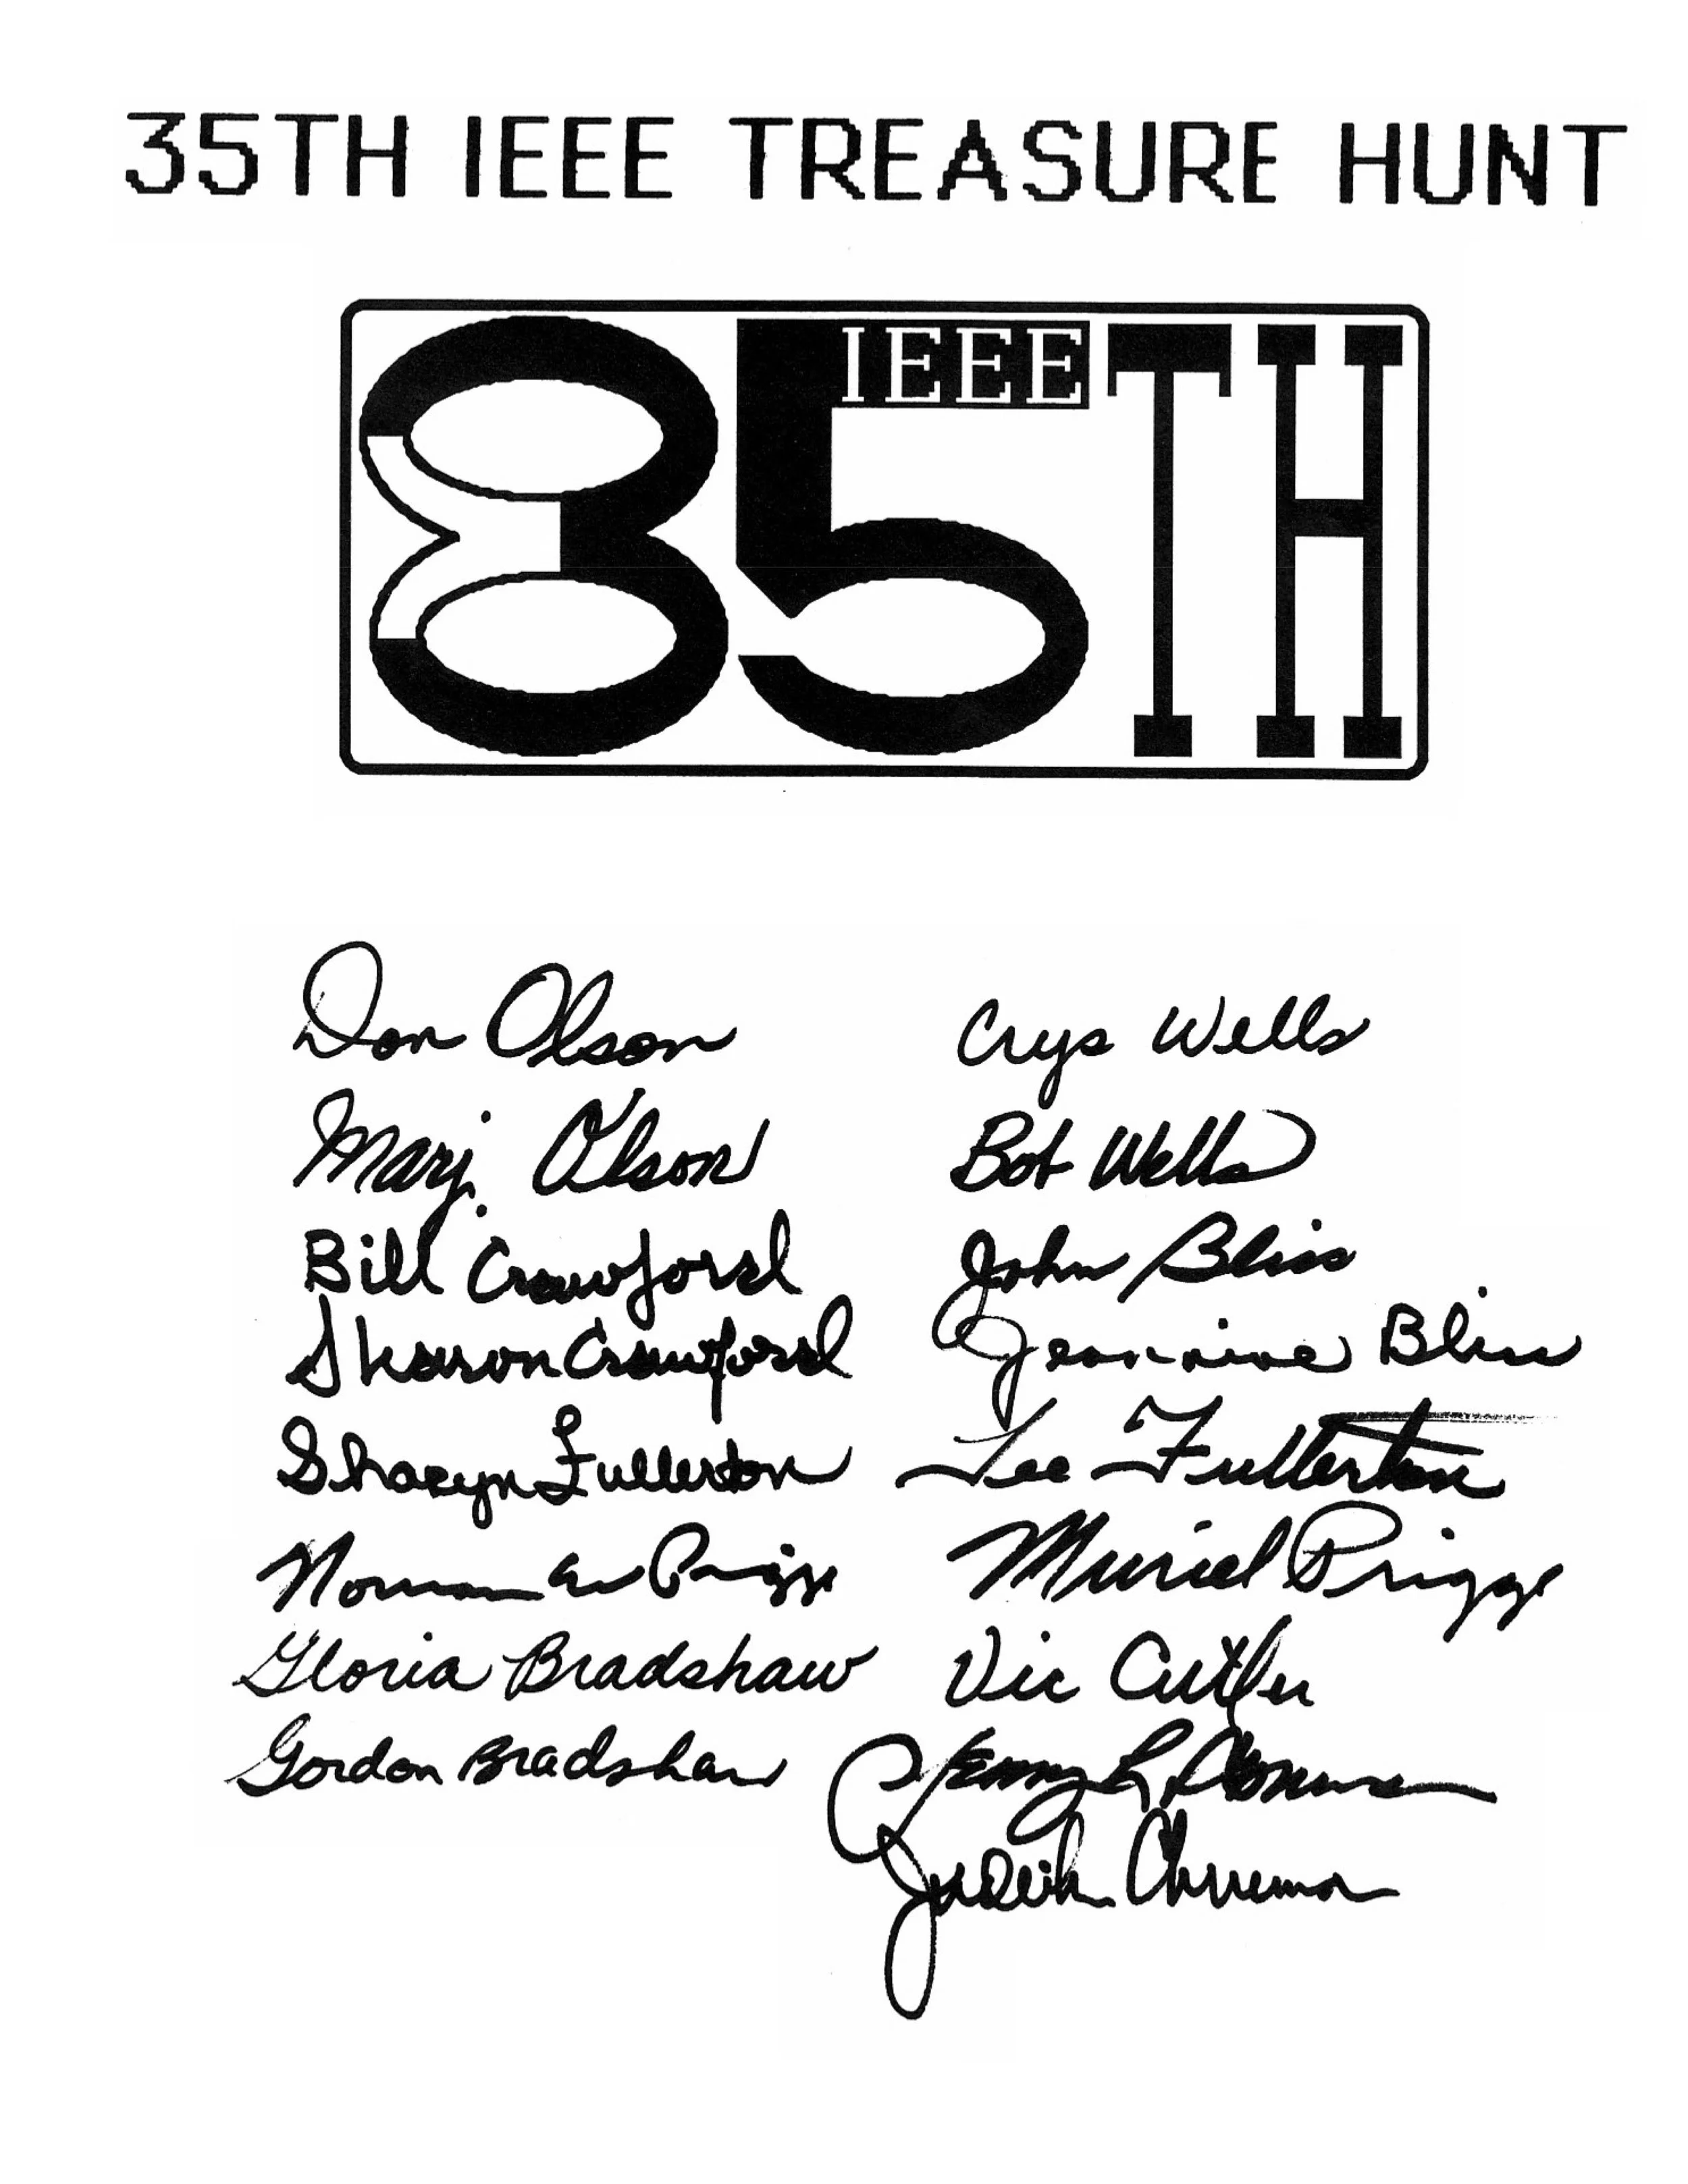 35TH IEEE TREASURE HUNT
IEEE
35TH
Don Olson
Marj Olson
Bill Crawford
Sharon Crawford
Sharyn Fullerton
Norman Prigge
Gloria Bradshaw
Gordon Bradshaw
Crys Wells
Bob Wells
John Bliss
Jeannine Bliss
Lee Fullerton
Muriel Prigge
Vic Cutler
L
Judith